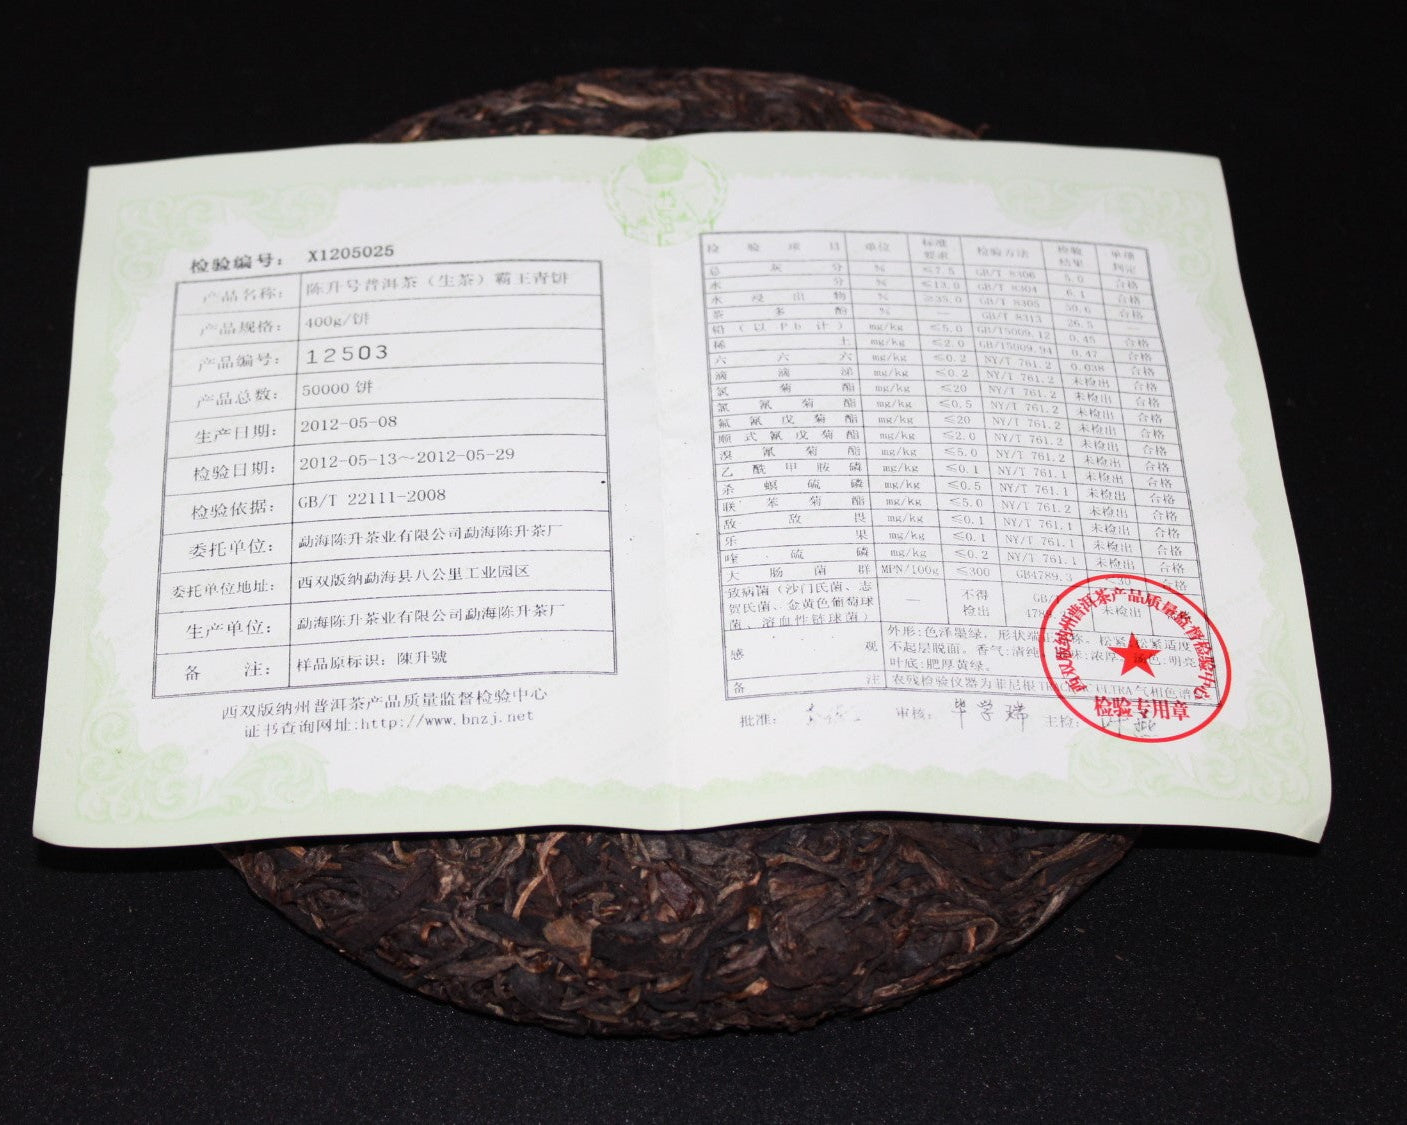 检验编号： X1205025
产品名称： 陈升号普洱茶（生茶）霸王青饼
产品规格： 400g/饼
产品编号： 12503
产品总数： 50000 饼
生产日期： 2012-05-08
检验日期： 2012-05-13～2012-05-29
检验依据： GB/T 22111-2008
委托单位： 勐海陈升茶业有限公司勐海陈升茶厂
委托单位地址： 西双版纳勐海县八公里工业园区
生产单位： 勐海陈升茶业有限公司勐海陈升茶厂
备 注： 样品原标识：陳升號
西双版纳州普洱茶产品质量监督检验中心
证书查询网址:http://www.bnzj.net
检验项目 单位 标准要求 检验方法 检验结果 单项判定
总灰分 % ≤7.5 GB/T 8306 5.0 合格
水分 % ≤13.0 GB/T 8304 6.1 合格
水浸出物 % ≥35.0 GB/T 8305 50.6 合格
茶多酚 % — GB/T 8313 26.5 —
铅（以Pb计） mg/kg ≤5.0 GB/T5009.12 0.45 合格
稀土 mg/kg ≤2.0 GB/T5009.94 0.47 合格
六六六 mg/kg ≤0.2 NY/T 761.2 0.038 合格
滴滴涕 mg/kg ≤0.2 NY/T 761.2 未检出 合格
氯菊酯 mg/kg ≤20 NY/T 761.2 未检出 合格
氯氰菊酯 mg/kg ≤0.5 NY/T 761.2 未检出 合格
氟氰戊菊酯 mg/kg ≤20 NY/T 761.2 未检出 合格
顺式氰戊菊酯 mg/kg ≤2.0 NY/T 761.2 未检出 合格
溴氰菊酯 mg/kg ≤5.0 NY/T 761.2 未检出 合格
乙酰甲胺磷 mg/kg ≤0.1 NY/T 761.1 未检出 合格
杀螟硫磷 mg/kg ≤0.5 NY/T 761.1 未检出 合格
联苯菊酯 mg/kg ≤5.0 NY/T 761.2 未检出 合格
敌敌畏 mg/kg ≤0.1 NY/T 761.1 未检出 合格
乐果 mg/kg ≤0.1 NY/T 761.1 未检出 合格
喹硫磷 mg/kg ≤0.2 NY/T 761.1 未检出 合格
大肠菌群 MPN/100g ≤300 GB4789.3 <30 合格
致病菌（沙门氏菌、志贺氏菌、金黄色葡萄球菌、溶血性链球菌） — 不得检出 GB/T 478 未检出
感观 外形:色泽墨绿，形状端正 松紧适度
不起层脱面。香气:清纯 味:浓厚 色:明亮
叶底:肥厚黄绿。
备注 农残检验仪器为菲尼根TRACE ULTRA气相色谱
批准： 审核： 毕学瑞 主检：
西双版纳州普洱茶产品质量监督检验中心
检验专用章